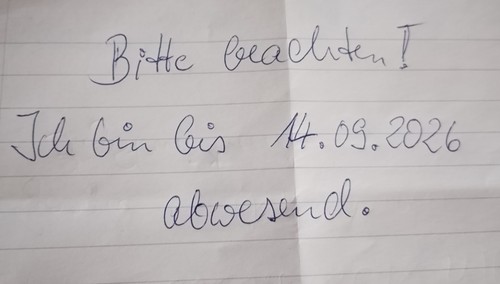 Bitte beachten!
Ich bin bis 14.09.2026
abwesend.